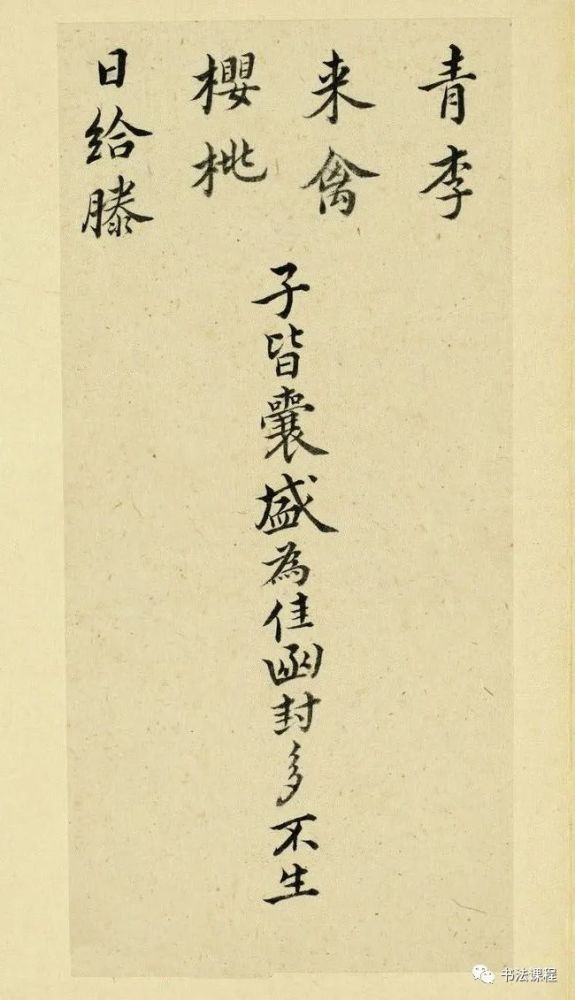 青李
来禽
櫻桃
日給滕
子皆囊盛為佳函封多不生
书法课程